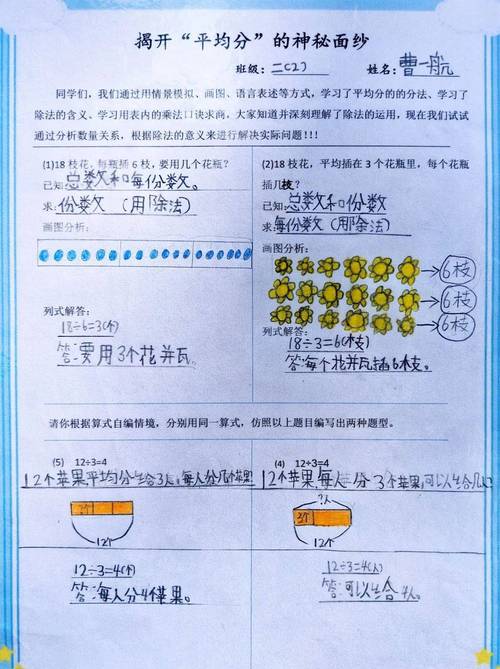 揭开“平均分”的神秘面纱
班级：二(2) 姓名：曹一航
同学们，我们通过用情景模拟、画图、语言表述等方式，学习了平均分的的分法、学习了
除法的含义、学习用表内的乘法口诀求商，大家知道并深刻理解了除法的运用，现在我们试试
通过分析数量关系，根据除法的意义来进行解决实际问题！！！
(1)18 枝花，每瓶插 6 枝，要用几个花瓶？
已知：总数和每份数。
求：份数 (用除法)
画图分析：
列式解答：
18÷6=3(个)
答:要用3个花并瓦。
(2)18 枝花，平均插在 3 个花瓶里，每个花瓶
插几枝？
已知：总数和份数
求：每份数 (用除法)
画图分析：
6枝
6枝
6枝
列式解答：
18÷3=6(枝)
答:每个花并瓦插6枝。
请你根据算式自编情境，分别用同一算式，仿照以上题目编写出两种题型。
(5) 12÷3=4
12个苹果平均分给3人，每人分几个苹果
12个
12÷3=4(个)
答:每人分4个苹果。
(4) 12÷3=4
12个苹果，每人分3个苹果，可以给几人
?人
3个
12个
12÷3=4(人)
答:可以给4人。